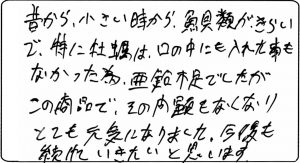 昔から、小さい時から、魚貝類がきらい
で、特に牡蠣は、口の中にも入れた事も
なかった為、亜鉛不足でしたが
この商品で、その内題もなくなり
とても元気になりました。今後も
続けていきたいと思います